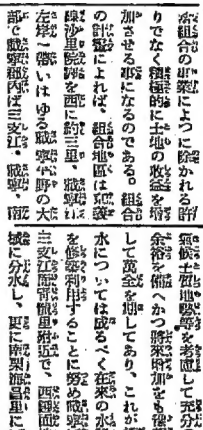 水組合の事業によつて除かれる許
りでなく積極的に土地の收益を增
加させる事になるのである。組合
の計畫によれば、組合地區は京義
線沙里院驛を西に約三里、載寧江
左岸一帶いはゆる載寧平野の大
部で載寧郡內は三支江、載寧、南
氣候土質地勢等を考慮して充分
余裕を備へかつ將來增加をも
して萬全を期してあり、これが
水については成るべく在來の水
を修築利用することに努め載寧
三支江面南慵里附近で、西
域に分水し、更に南栗面昌里に